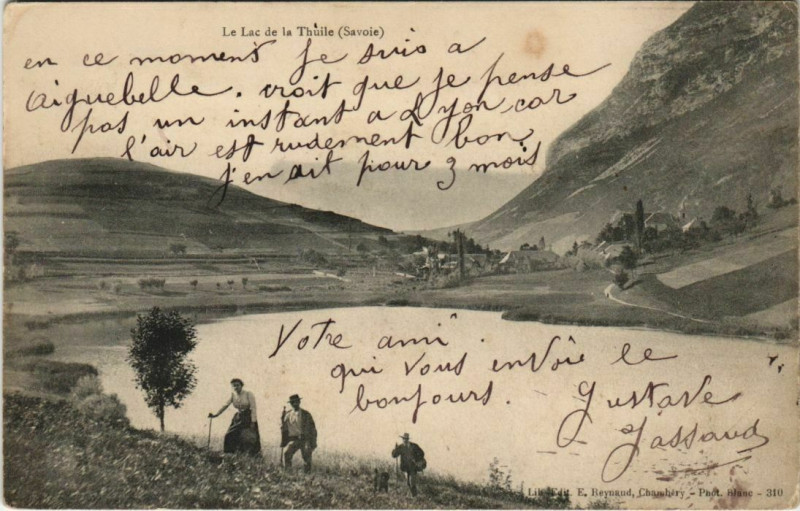 Le Lac de la Thuile (Savoie)
en ce moment je suis a
Aiguebelle. croit que je pense
pas un instant a Lyon car
l'air est rudement bon
j'en ait pour 3 mois
Votre ami.
qui vous envoie le
bonjours.
Gustave
Jassaud
Lib. Edit. E. Reynaud, Chambéry - Phot. Blanc - 310